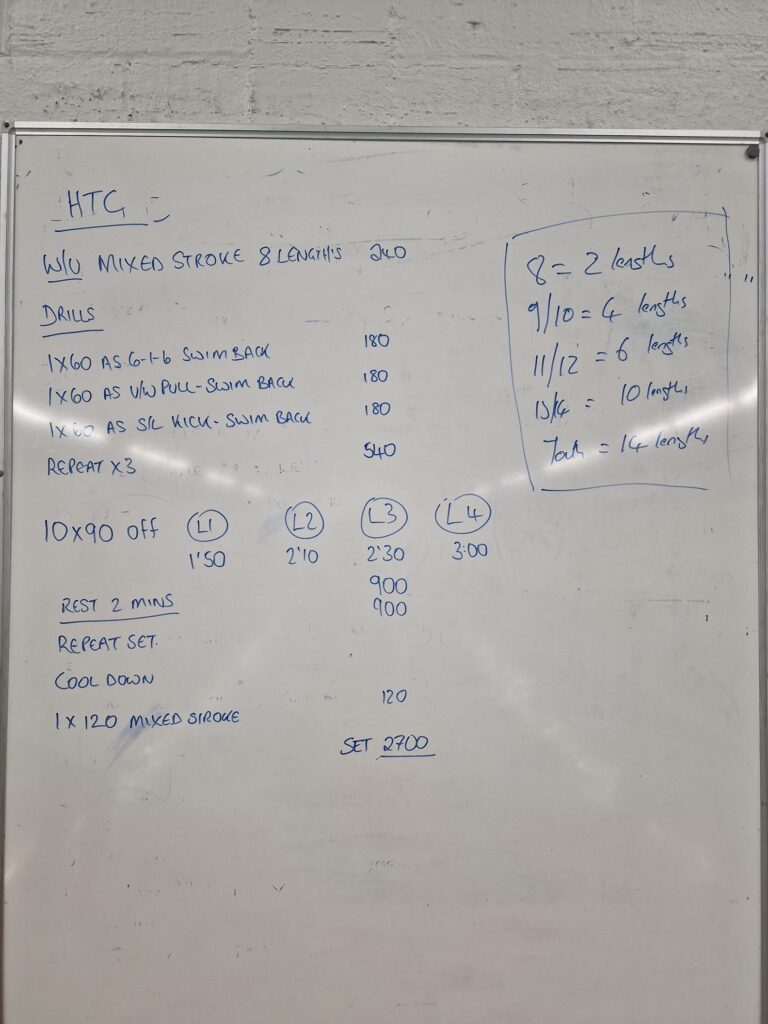 HTC
W/U MIXED STROKE 8 LENGTH'S 240
DRILLS
1X60 AS 6-1-6 SWIM BACK 180
1X60 AS U/W PULL-SWIM BACK 180
1X60 AS S/L KICK-SWIM BACK 180
REPEAT X3 540
10X90 OFF L1 L2 L3 L4
1'50 2'10 2'30 3:00
900
REST 2 MINS 900
REPEAT SET.
COOL DOWN
1 X 120 MIXED STROKE 120
SET 2700
8 = 2 lengths
9/10 = 4 lengths
11/12 = 6 lengths
13/14 = 10 lengths
= 14 lengths